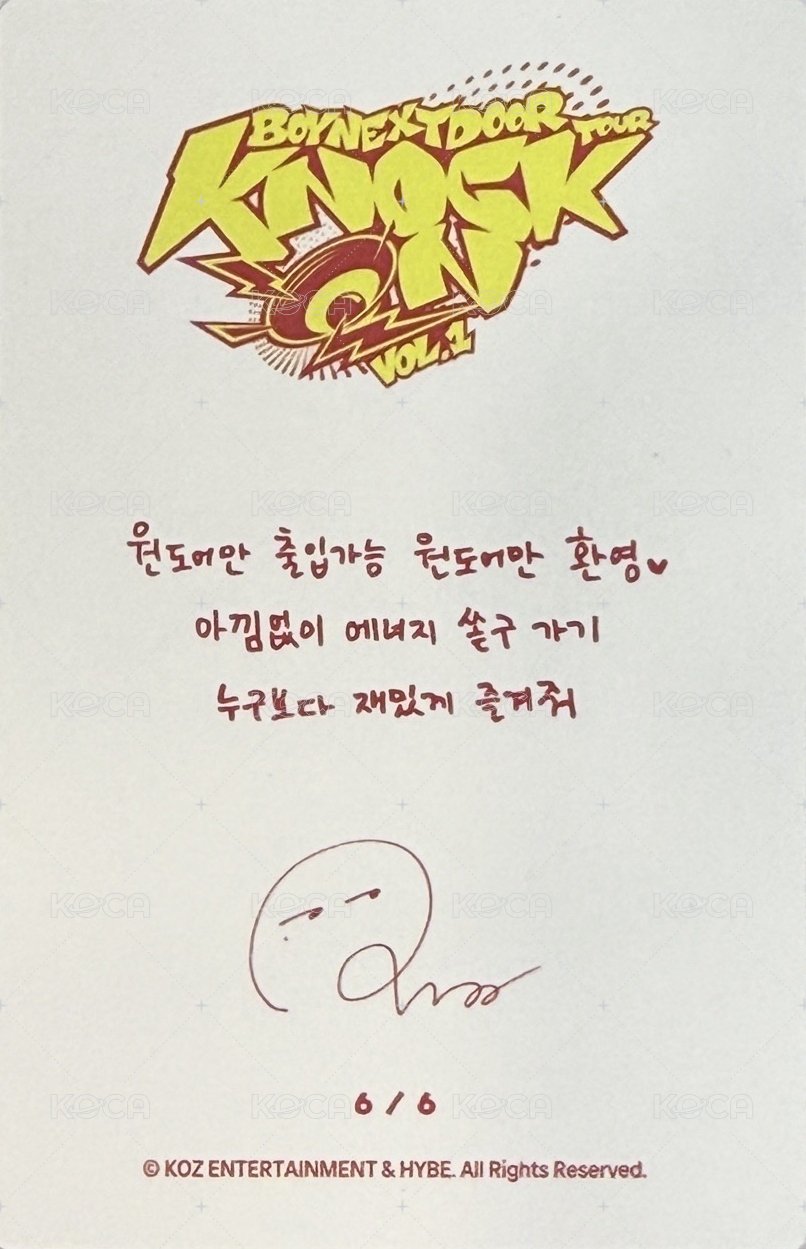 BOYNEXTDOOR TOUR
KNOCK
ON
VOL.1
원도어만 출입가능 원도어만 환영♥
아낌없이 에너지 쏟구 가기
누구보다 재밌게 즐겨줘
6 / 6
© KOZ ENTERTAINMENT & HYBE. All Rights Reserved.
KOCA